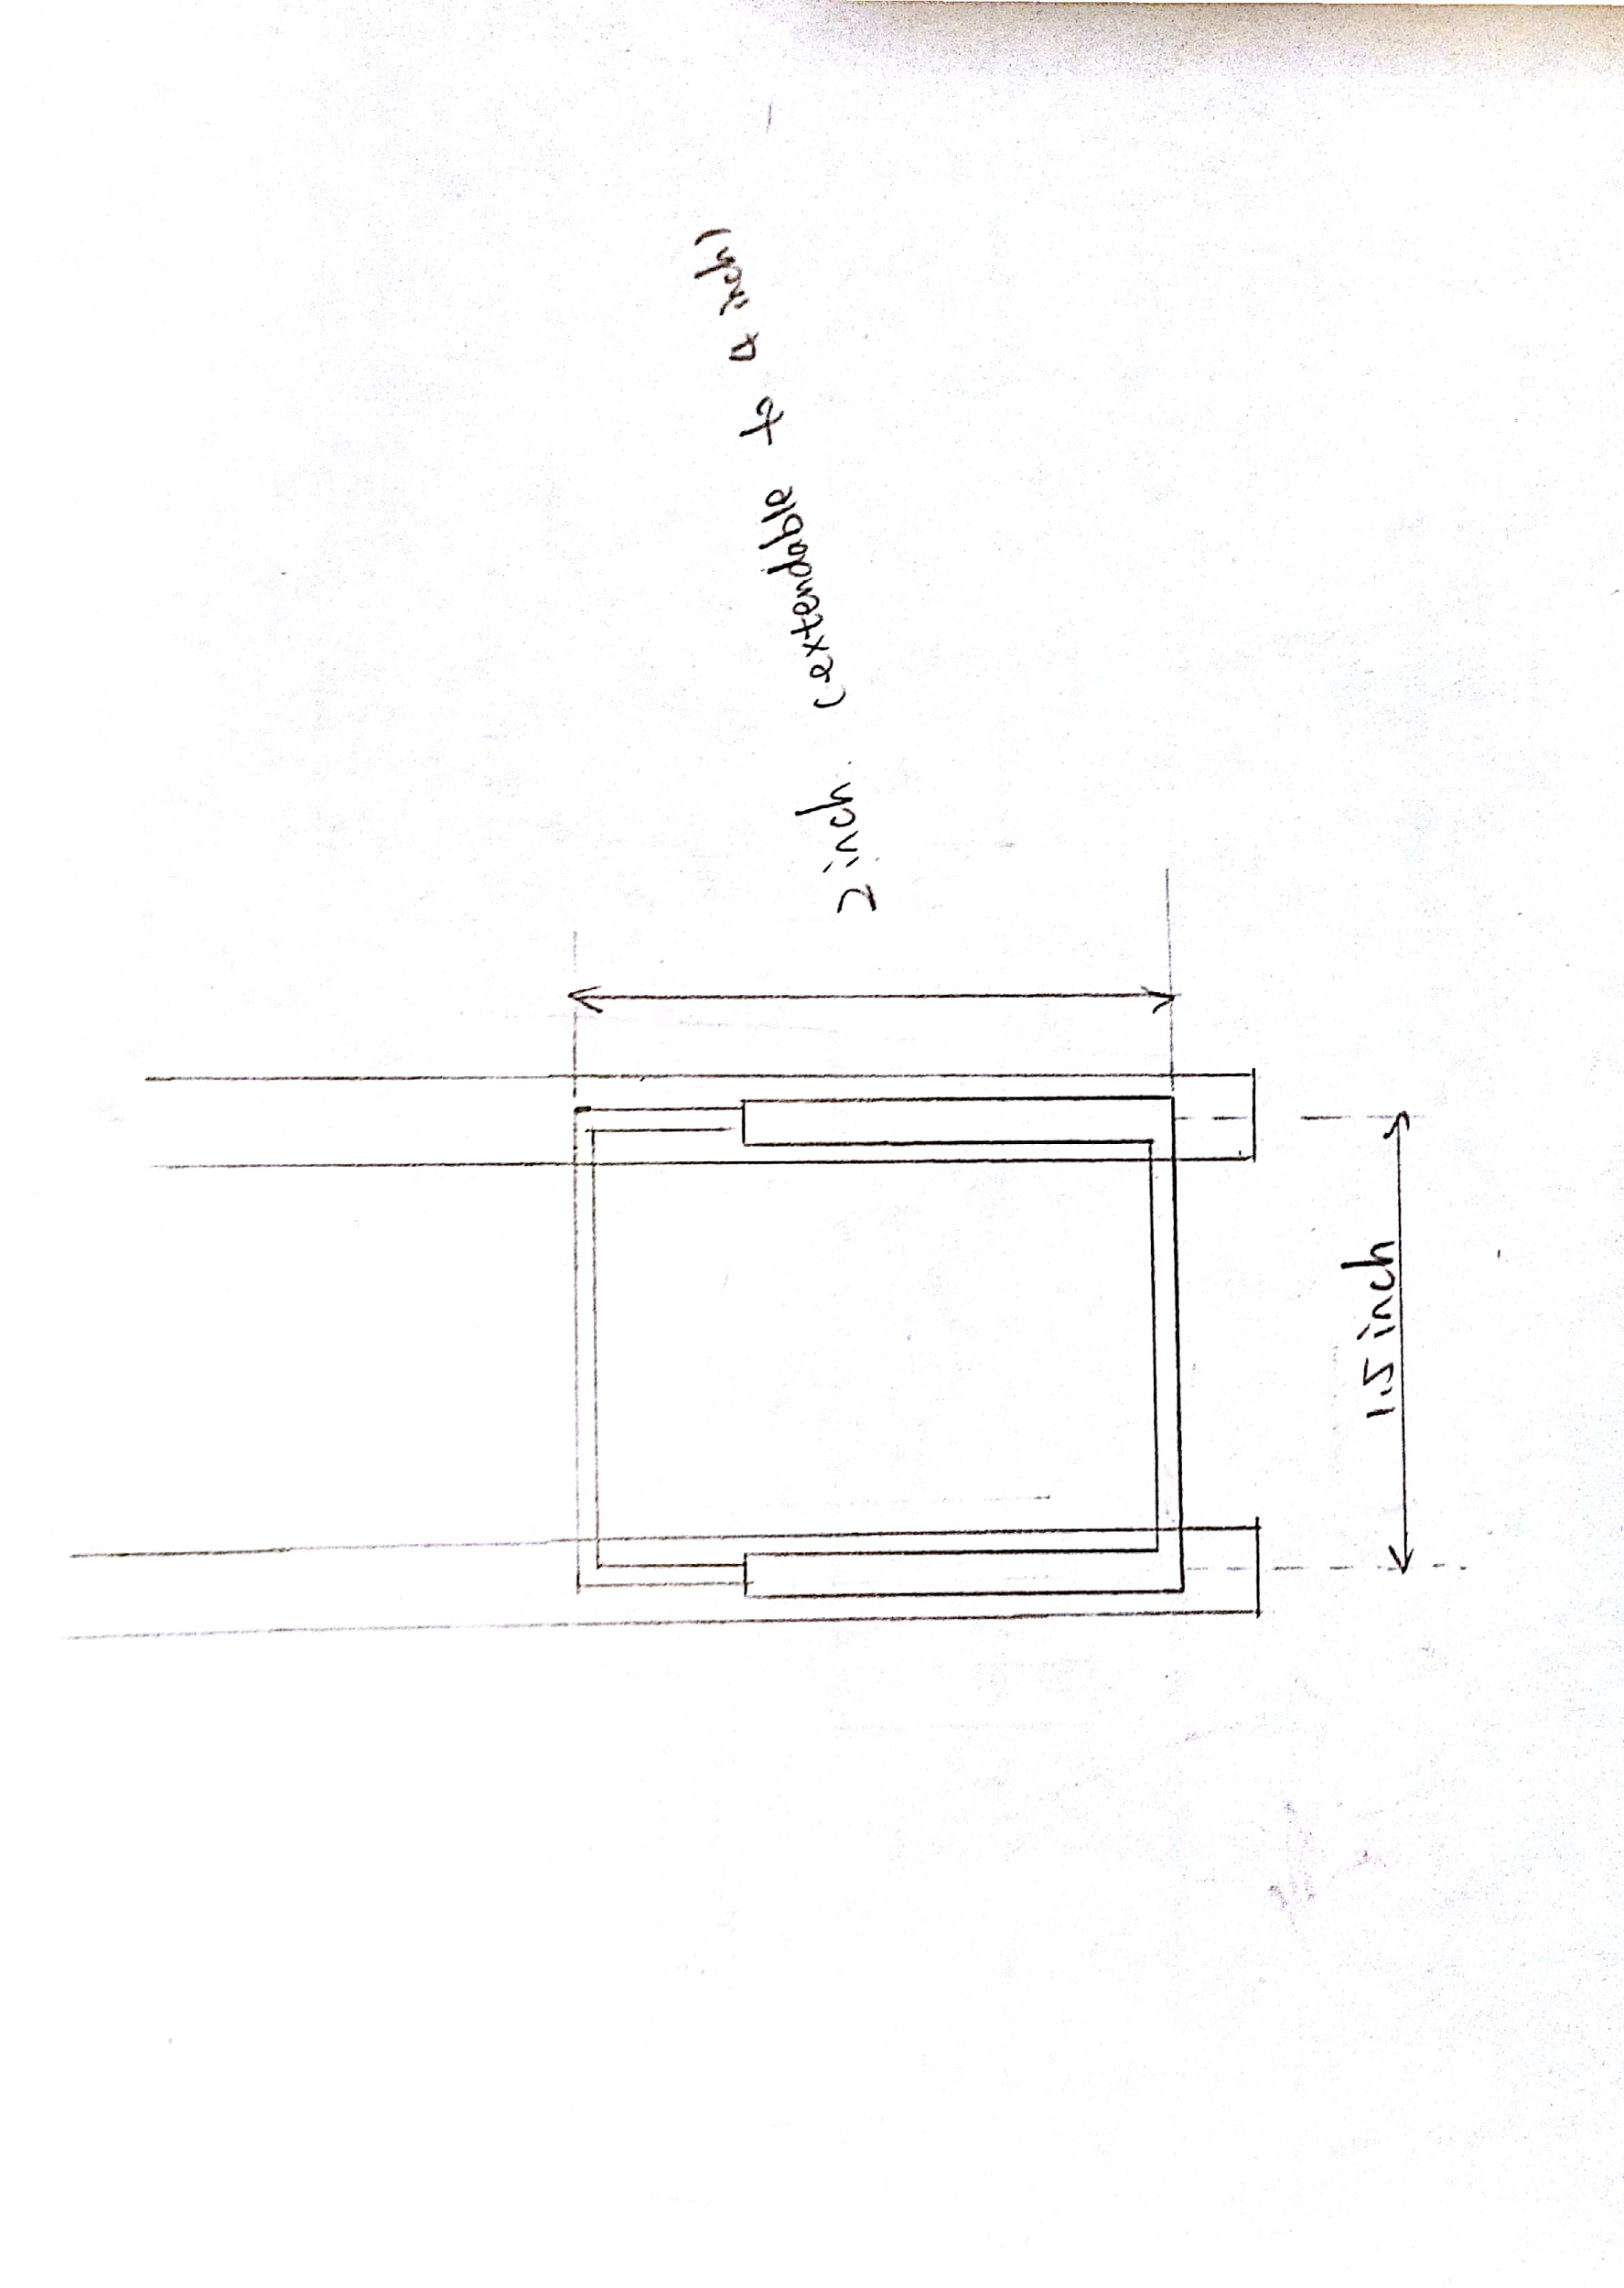 2 inch (extendable to 4 inch)
1.5 inch